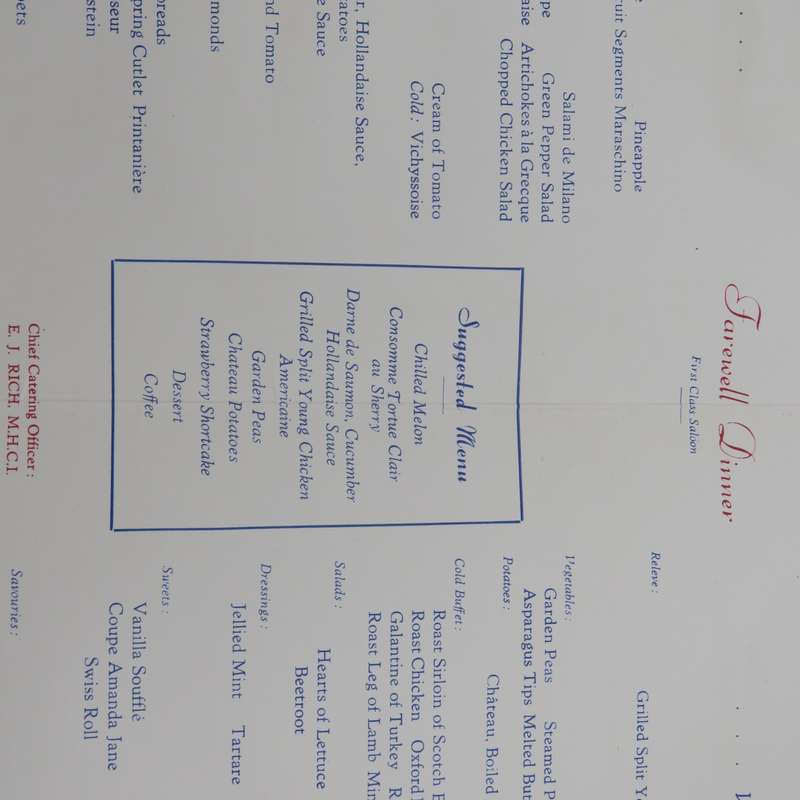 Farewell Dinner
First Class Saloon
Pineapple
Segments Maraschino
Salami de Milano
Green Pepper Salad
Artichokes à la Grecque
Chopped Chicken Salad
Cream of Tomato
Cold: Vichyssoise
Hollandaise Sauce,
Sauce
Tomato
Spring Cutlet Printanière
Suggested Menu
Chilled Melon
Consomme Tortue Clair
au Sherry
Darne de Saumon, Cucumber
Hollandaise Sauce
Grilled Split Young Chicken
Americaine
Garden Peas
Chateau Potatoes
Strawberry Shortcake
Dessert
Coffee
Chief Catering Officer:
E. J. RICH, M.H.C.I.
Releve:
Grilled Split
Vegetables:
Garden Peas Steamed
Asparagus Tips Melted
Potatoes:
Château, Boiled
Cold Buffet:
Roast Sirloin of Scotch
Roast Chicken Oxford
Galantine of Turkey
Roast Leg of Lamb
Salads:
Hearts of Lettuce
Beetroot
Dressings:
Jellied Mint Tartare
Sweets:
Vanilla Soufflé
Coupe Amanda Jane
Swiss Roll
Savouries: